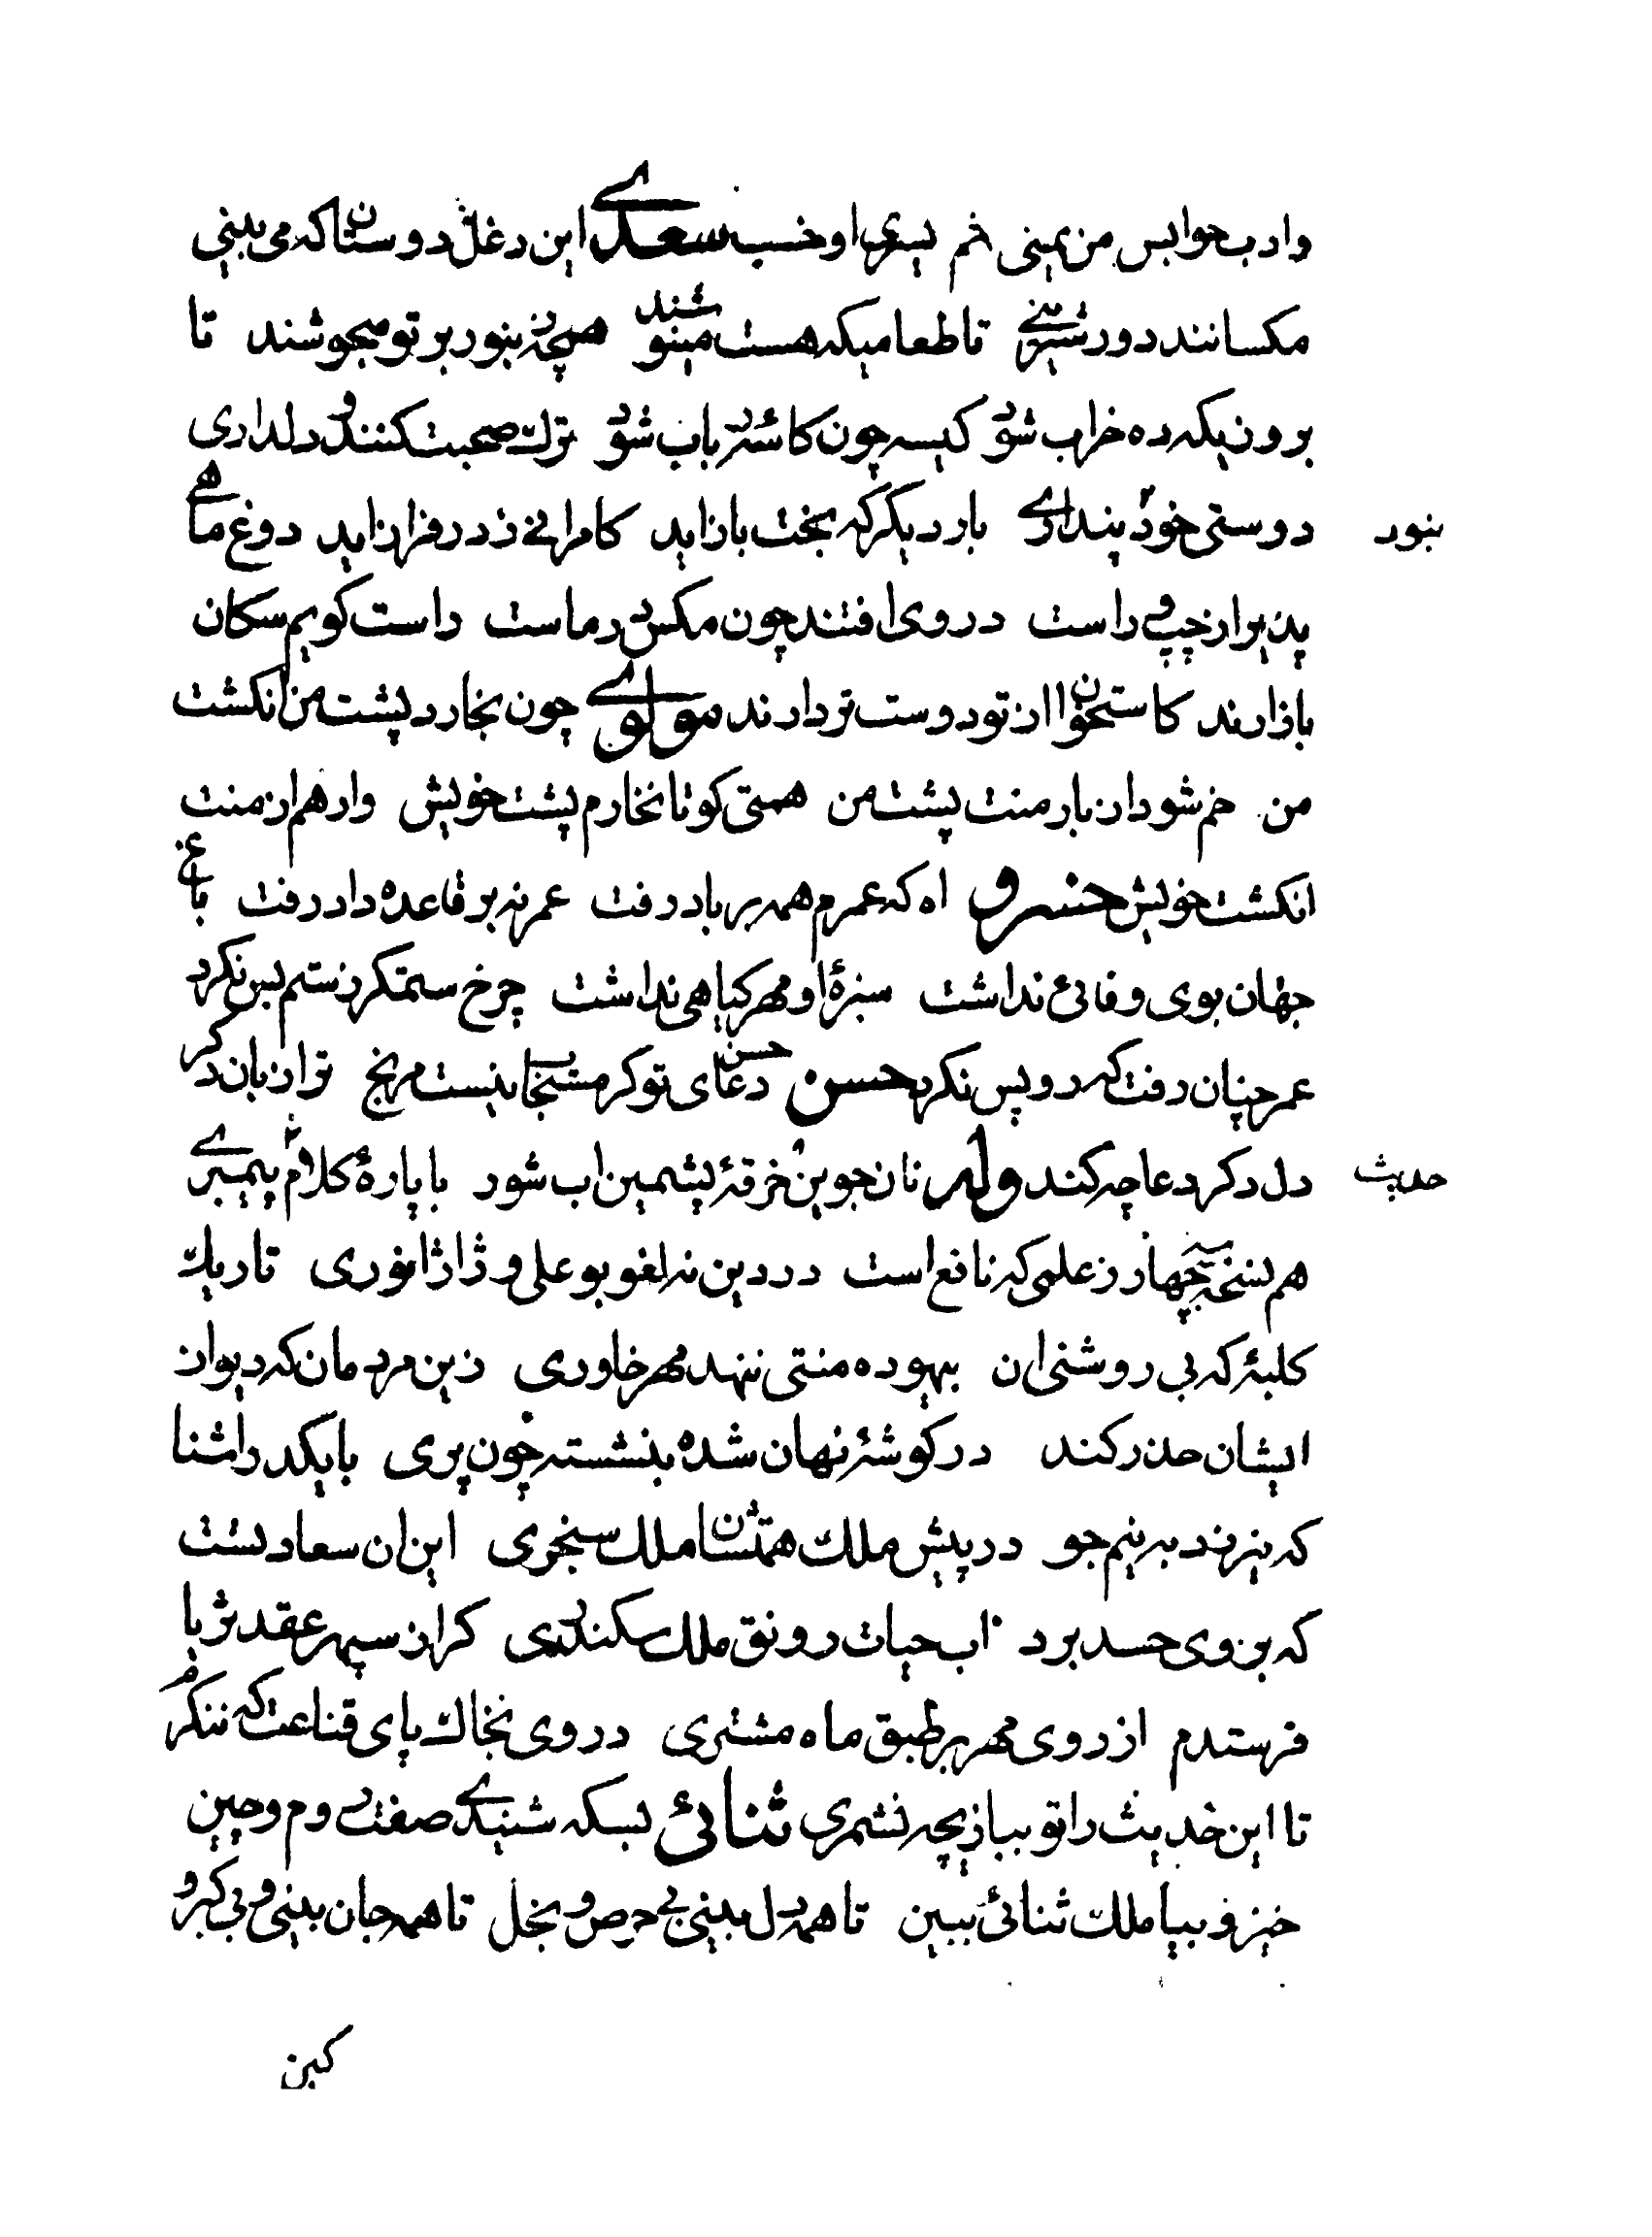 وادب حوابس من یمینی خم یسری او خسب سعدی این دغل دوستان که می بینی
مکسانند دور شیرینی تا طعامیکه هست مینوشند همچو زنبور بر تو میجوشند تا
بر و نیکه ده خراب شود کیسه چون کاسه رباب شود ترک صحبت کنند و دلداری
دوستی خود نپنداری بار دیکر که بخت باز اید کامرانی ز در فراز اید دوغ ماهی
پذیر از چپ و راست در وی افتند چون مکس در ماست راست کویم سکان
بازارند کاستخوان از تو دوست تر دارند مولوی چون نخارد پشت من انکشت
من خم شود از بار منت پشت من همتی کو تا نخارم پشت خویش وارهم از منت
انکشت خویش خسرو اه که عمرم همه بر باد رفت عمر نه بر قاعده داد رفت باغ
جهان بوی وفائی نداشت سبزهٔ او مهر کیاهی نداشت چرخ ستمکر ز ستم بس نکرد
عمر چنان رفت که رو پس نکرد حسن دعای تو کر مستجاب نیست مرنج ترا زبان دکر
دل دکر دعا چه کند وله نان جوین و خرقهٔ پشمین اب شور با پارهٔ کلام و حدیث پیمبری
هم نسخهٔ چهار ز علمی که نافع است در دین نه لغو بوعلی و ژاژ انوری تاریک
کلبهٔ که پی روشنی ان بیهوده منتی ننهد مهر خاوری زین مردمان که دیو از
ایشان حذر کند در کوشهٔ نهان شده بنشسته چون پری با یکد راشنا
که نیرزد به نیم جو در پیش ملک همتشان ملک سنجری این ان سعادتست
که بر وی حسد برد اب حیات رونق ملک سکندری کر از سپهر عقد ثریا
فرستدم از روی مهر بر طبق ماه مشتری در روی بخاک پای قناعت که ننکرم
تا این حدیث را تو ببازیچه نشمری ثنائی بسکه شنیدی صفت روم و چین
خیز و بیا ملک ثنائی ببین تا همه دل بینی بی حرص و بخل تا همه جان بینی و بی کبر و
کین
زنبور
حدیث